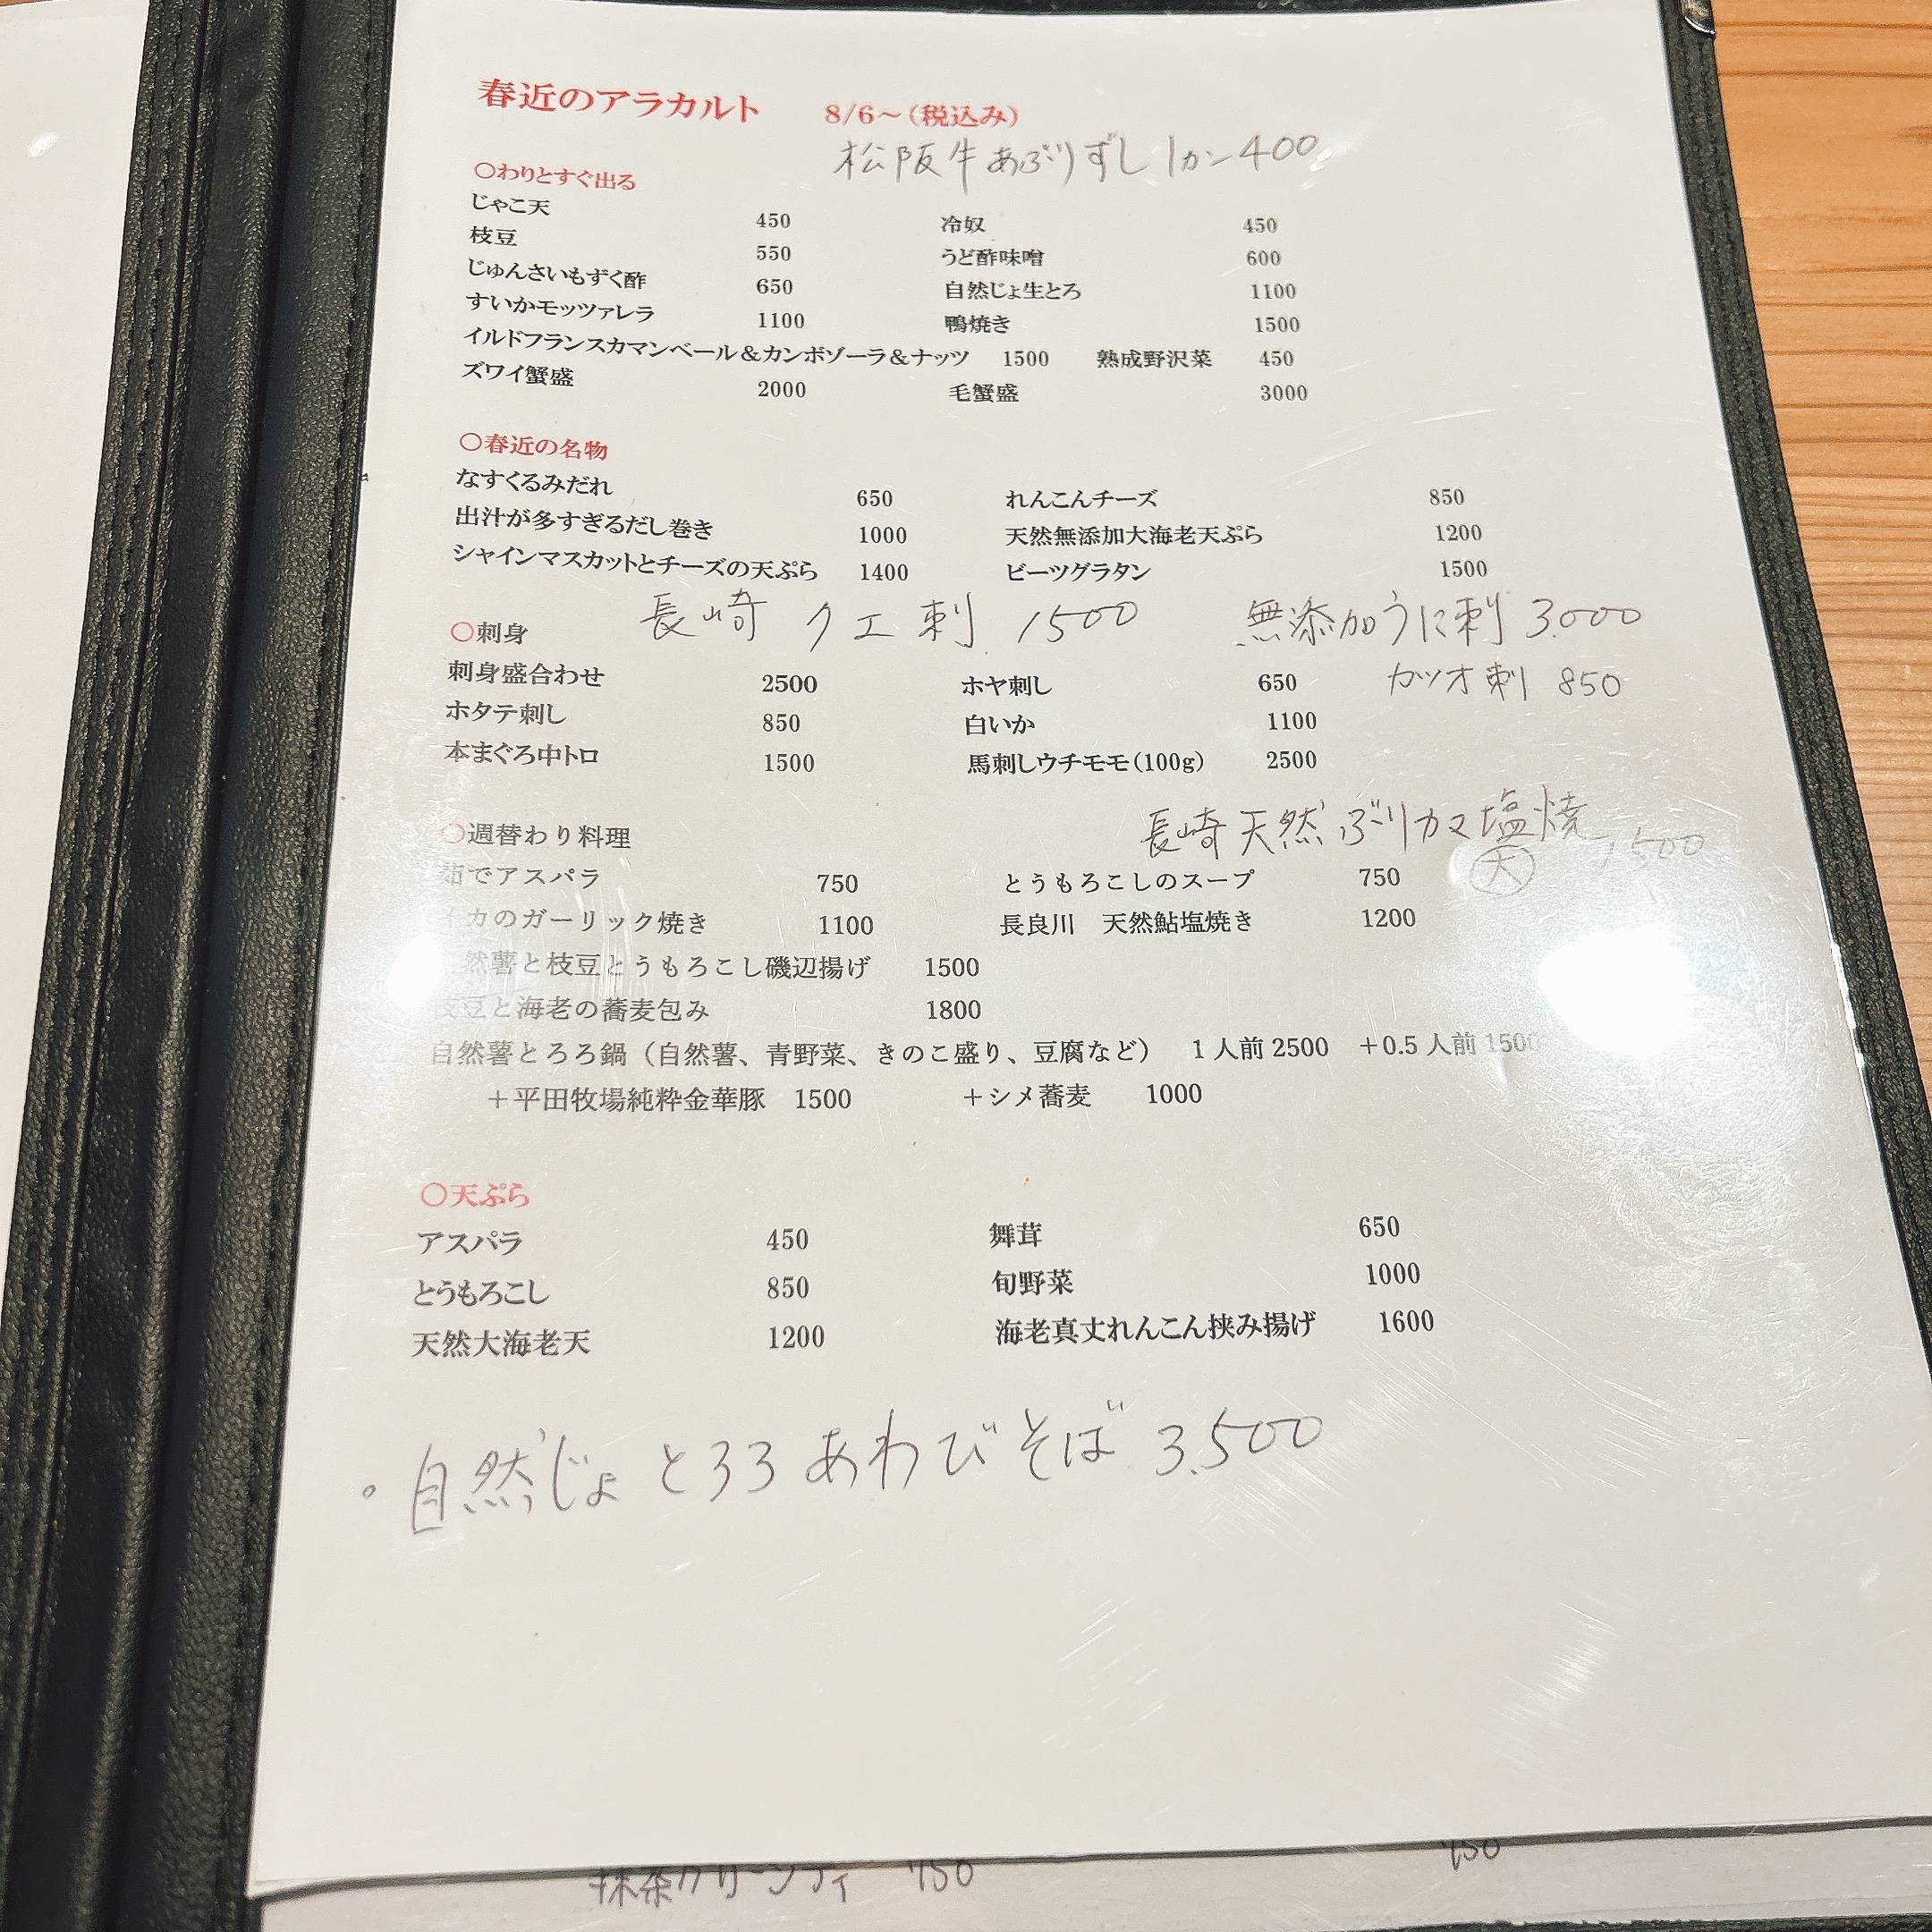 春近のアラカルト 8/6～(税込み)
松阪牛あぶりずし 1カン 400
○わりとすぐ出る
じゃこ天 450 冷奴 450
枝豆 550 うど酢味噌 600
じゅんさいもずく酢 650 自然じょ生とろ 1100
すいかモッツァレラ 1100 鴨焼き 1500
イルドフランスカマンベール＆カンボゾーラ＆ナッツ 1500 熟成野沢菜 450
ズワイ蟹盛 2000 毛蟹盛 3000
○春近の名物
なすくるみだれ 650 れんこんチーズ 850
出汁が多すぎるだし巻き 1000 天然無添加大海老天ぷら 1200
シャインマスカットとチーズの天ぷら 1400 ビーツグラタン 1500
長崎 クエ刺 1500 無添加うに刺 3.000
○刺身
刺身盛合わせ 2500 ホヤ刺し 650 カツオ刺 850
ホタテ刺し 850 白いか 1100
本まぐろ中トロ 1500 馬刺しウチモモ(100g) 2500
長崎天然ぶりカマ塩焼 大 1500
○週替わり料理
茹でアスパラ 750 とうもろこしのスープ 750
イカのガーリック焼き 1100 長良川 天然鮎塩焼き 1200
然薯と枝豆とうもろこし磯辺揚げ 1500
枝豆と海老の蕎麦包み 1800
自然薯とろろ鍋（自然薯、青野菜、きのこ盛り、豆腐など） 1人前2500 ＋0.5人前1500
＋平田牧場純粋金華豚 1500 ＋シメ蕎麦 1000
○天ぷら
アスパラ 450 舞茸 650
とうもろこし 850 旬野菜 1000
天然大海老天 1200 海老真丈れんこん挟み揚げ 1600
。自然じょ とろろ あわび そば 3.500
抹茶グリーンティ 750
750